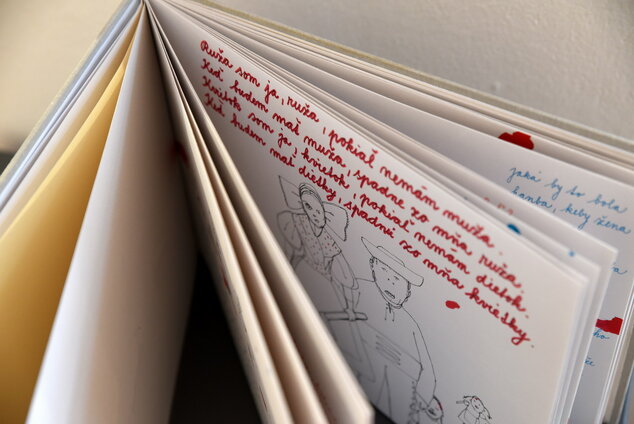 Ruža som ja, ruža, pokiaľ nemám muža.
Keď budem mať muža, spadne zo mňa ruža.
Kvietok som ja, kvietok, pokiaľ nemám dietok.
Keď budem mať dietky, spadnú zo mňa kvietky.
jaká by to bola
hanba, keby žena